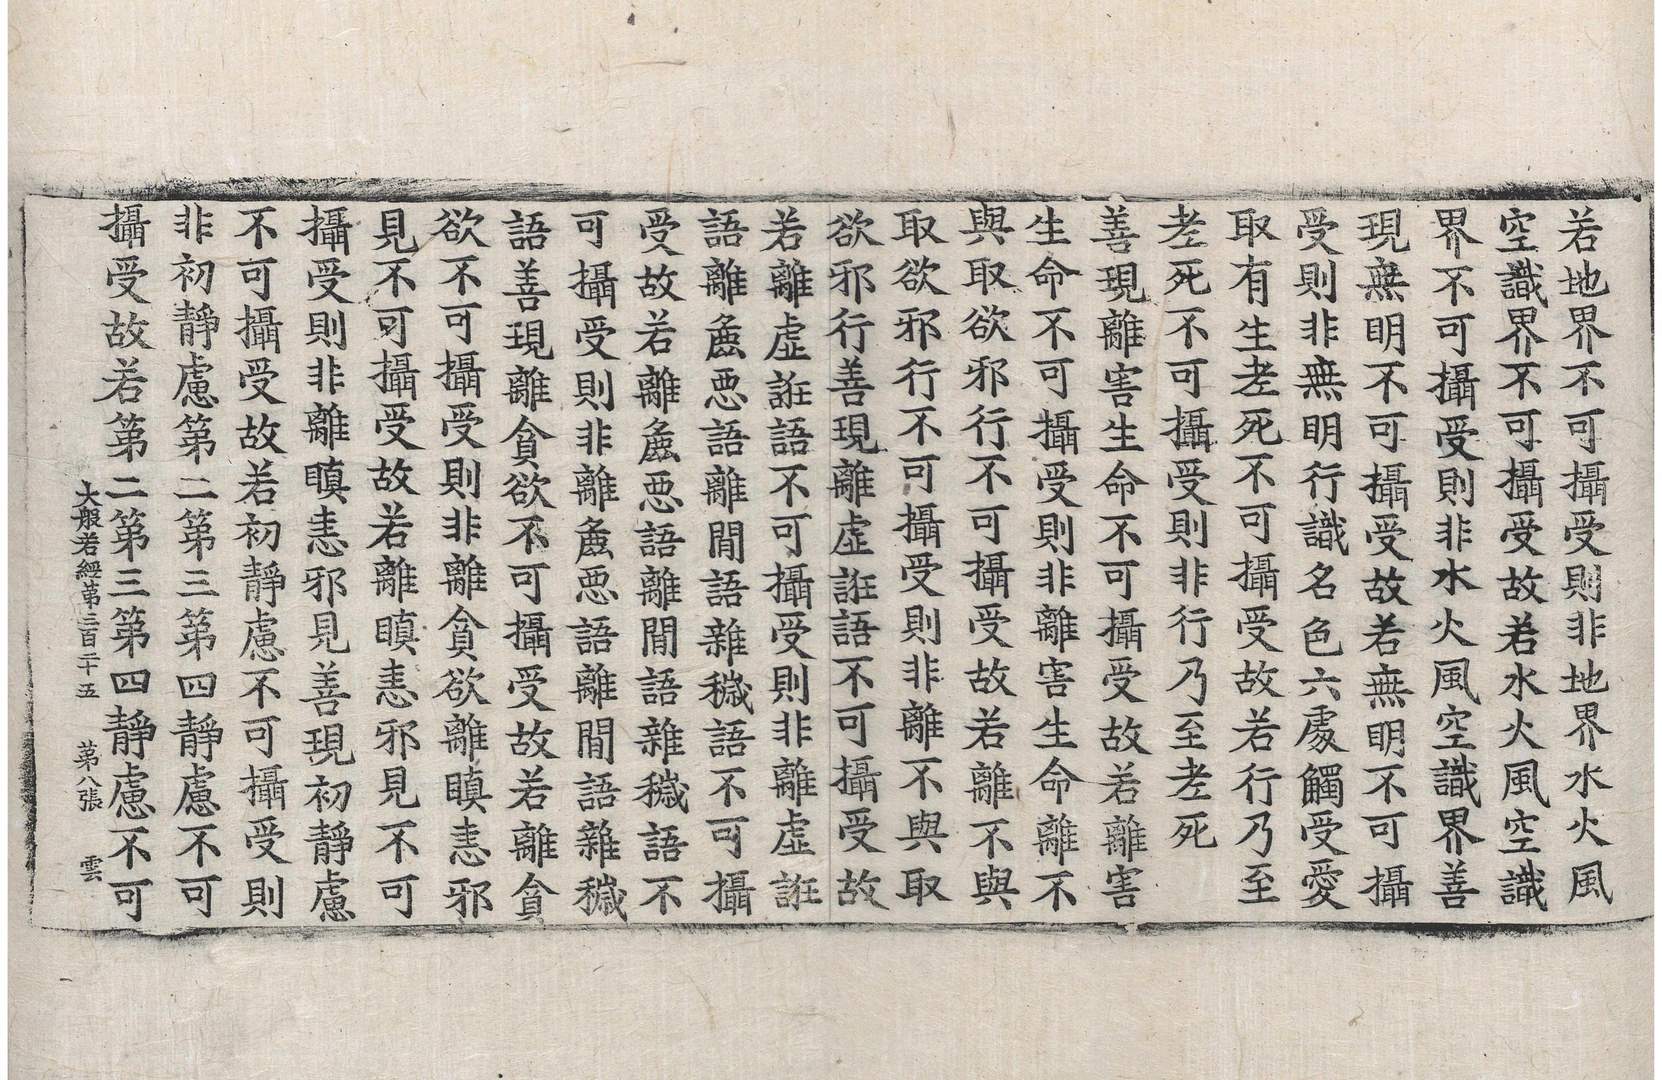 若地界不可攝受則非地界水火風
空識界不可攝受故若水火風空識
界不可攝受則非水火風空識界善
現無明不可攝受故若無明不可攝
受則非無明行識名色六處觸受愛
取有生老死不可攝受故若行乃至
老死不可攝受則非行乃至老死
善現離害生命不可攝受故若離害
生命不可攝受則非離害生命離不
與取欲邪行不可攝受故若離不與
取欲邪行不可攝受則非離不與取
欲邪行善現離虛誑語不可攝受故
若離虛誑語不可攝受則非離虛誑
語離麁惡語離間語雜穢語不可攝
受故若離麁惡語離間語雜穢語不
可攝受則非離麁惡語離間語雜穢
語善現離貪欲不可攝受故若離貪
欲不可攝受則非離貪欲離瞋恚邪
見不可攝受故若離瞋恚邪見不可
攝受則非離瞋恚邪見善現初靜慮
不可攝受故若初靜慮不可攝受則
非初靜慮第二第三第四靜慮不可
攝受故若第二第三第四靜慮不可
大般若經第三百二十五 第八張 雲